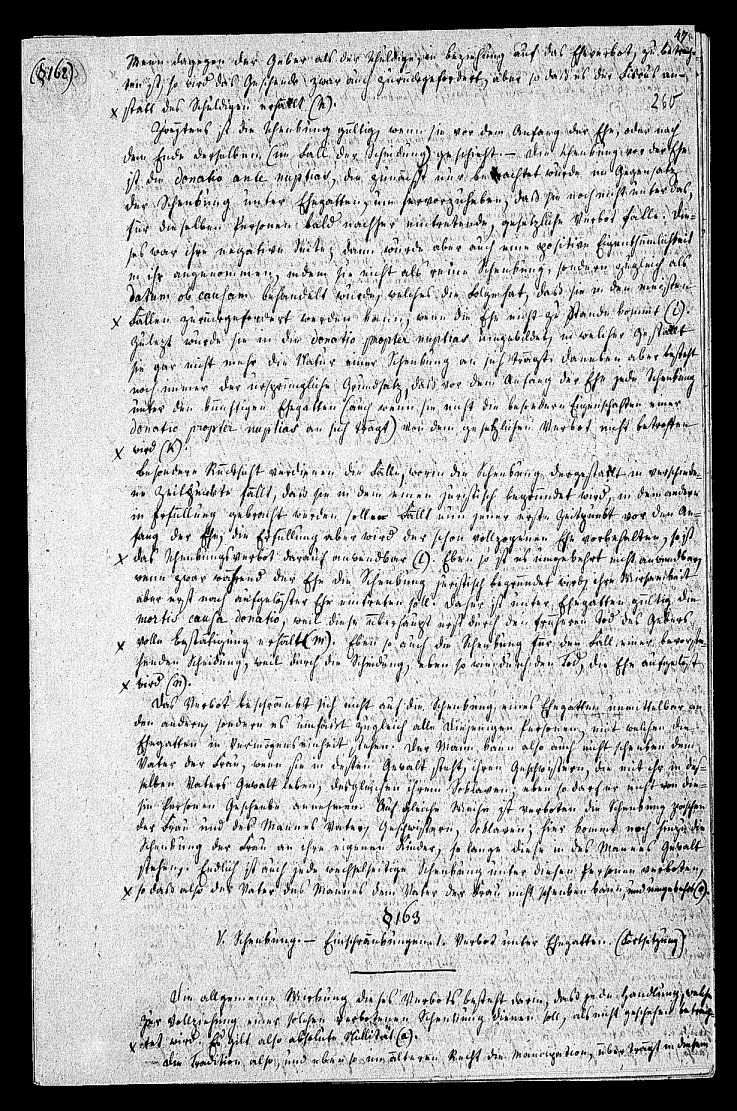 47
(§162)
Wenn dagegen der Geber als der Schuldige, in Beziehung auf das Eheverbot, zu betrach-
ten ist, so wird das Geschenk zwar auch zurückgefordert, aber so daß es der Fiscus an-
x statt des Schuldigen erhält (h).
265
Zweytens ist die Schenkung gültig, wenn sie vor dem Anfang der Ehe, oder nach
dem Ende derselben (im Fall der Scheidung) geschieht. — Die Schenkung vor der Ehe
ist die donatio ante nuptias, die zunächst nur betrachtet wurde im Gegensatz
der Schenkung unter Ehegatten, um hervorzuheben, daß sie noch nicht unter das,
für dieselben Personen bald nachher eintretende, gesetzliche Verbot falle. Die-
ses war ihre negative Seite; dann wurde aber auch eine positive Eigenthümlichkeit
in ihr angenommen, indem sie nicht als reine Schenkung, sondern zugleich als
datum ob causam behandelt wurde, welches die Folge hat, daß sie in den meisten
x Fällen zurückgefordert werden kann, wenn die Ehe nicht zu Stande kommt (i).
Zuletzt wurde sie in die donatio propter nuptias umgebildet, in welcher Gestalt
sie gar nicht mehr die Natur einer Schenkung an sich trägt: daneben aber besteht
noch immer der ursprüngliche Grundsatz, daß vor dem Anfang der Ehe jede Schenkung
unter den künftigen Ehegatten (auch wenn sie nicht die besondern Eigenschaften einer
donatio propter nuptias an sich trägt) von dem gesetzlichen Verbot nicht betroffen
x wird (k).
Besondere Rücksicht verdienen die Fälle, worin die Schenkung dergestalt in verschiede-
ne Zeitpunkte fällt, daß sie in dem einen juristisch begründet wird, in dem andern
in Erfüllung gebracht werden soll. Fällt nun jener erste Zeitpunkt vor den An-
fang der Ehe, die Erfüllung aber wird der schon vollzogenen Ehe vorbehalten, so ist
x das Schenkungsverbot darauf anwendbar (l). Eben so ist es umgekehrt nicht anwendbar,
wenn zwar während der Ehe die Schenkung juristisch begründet wird, ihre Wirksamkeit
aber erst nach aufgelöster Ehe eintreten soll. Daher ist unter Ehegatten gültig die
mortis causa donatio, weil diese überhaupt erst durch den früheren Tod des Gebers
x volle Bestätigung erhält (m). Eben so auch die Schenkung für den Fall einer bevorste-
henden Scheidung, weil durch die Scheidung, eben so wie durch den Tod, die Ehe aufgelöst
x wird (n).
Das Verbot beschränkt sich nicht auf die Schenkung eines Ehegatten unmittelbar an
den andern, sondern es umfaßt zugleich alle diejenigen Personen, mit welchen die
Ehegatten in Vermögenseinheit stehen. Der Mann kann also auch nicht schenken dem
Vater der Frau, wenn sie in dessen Gewalt steht, ihren Geschwistern, die mit ihr in des-
selben Vaters Gewalt leben, desgleichen ihrem Sklaven; eben so darf er nicht von die-
sen Personen Geschenke annehmen. Auf gleiche Weise ist verboten die Schenkung zwischen
der Frau und des Mannes Vater, Geschwistern, Sklaven; hier kommt noch hinzu die
Schenkung der Frau an ihre eigenen Kinder, so lange diese in des Mannes Gewalt
stehen. Endlich ist auch jede wechselseitige Schenkung unter diesen Personen verboten,
x so daß also der Vater des Mannes dem Vater der Frau nicht schenken kann, und umgekehrt (o).
§163
V. Schenkung. — Einschränkungen. 1. Verbot unter Ehegatten. (Fortsetzung)
Die allgemeine Wirkung dieses Verbots besteht darin, daß jede Handlung, welche
zur Vollziehung einer solchen verbotenen Schenkung dienen soll, als nicht geschehen betrach-
x tet wird. Es gilt also absolute Nullität (a).
— Die Tradition also, und eben so im älteren Recht die Mancipation, überträgt in diesem